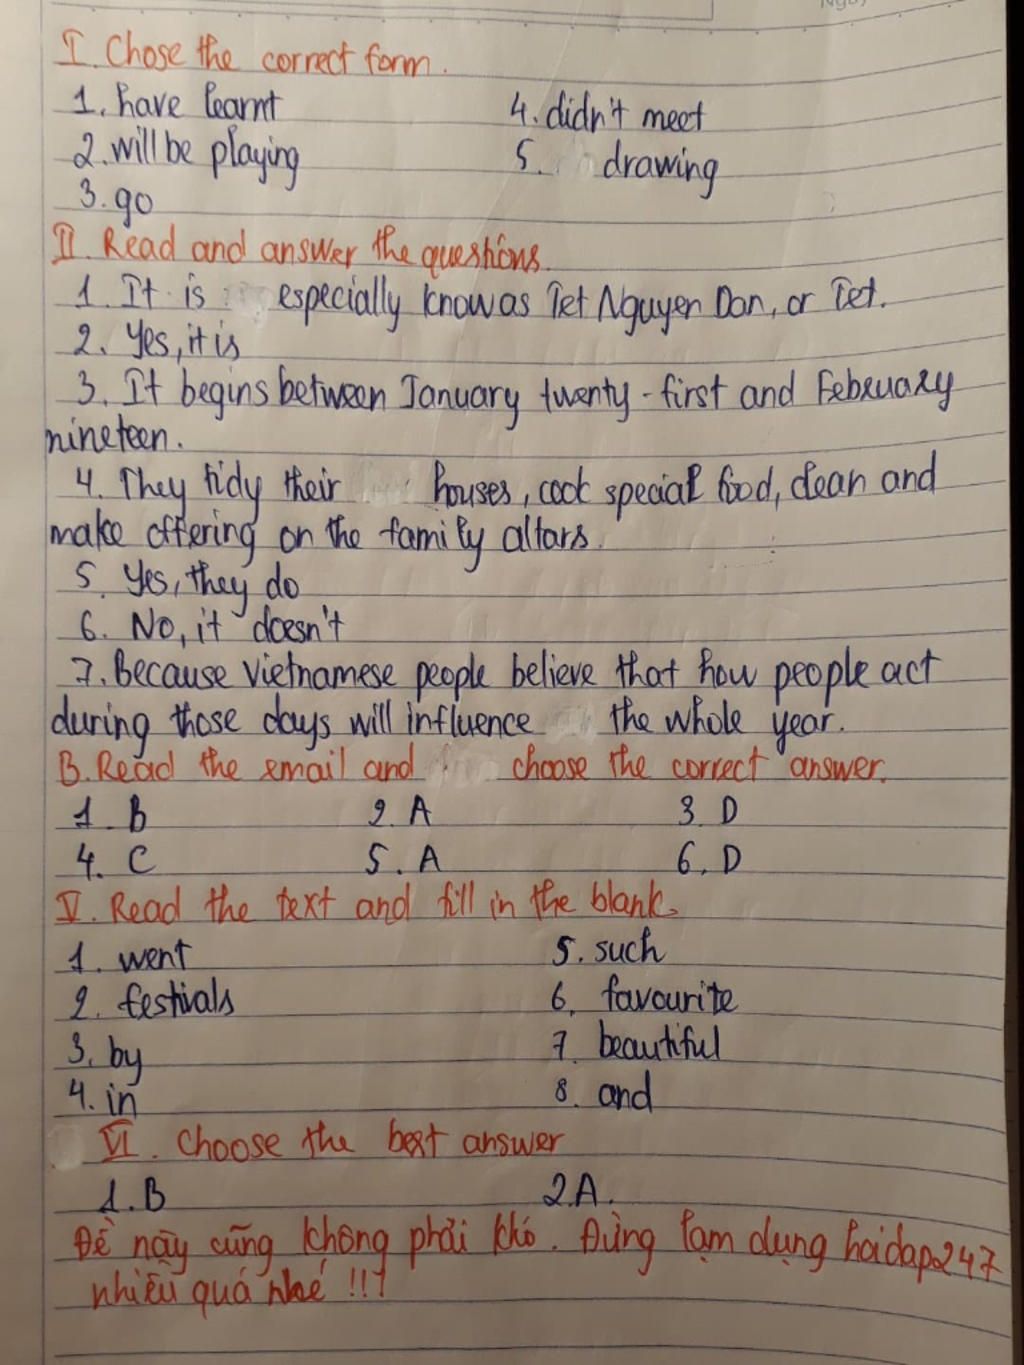 I. Chose the correct form.
1. have learnt 4. didn't meet
2. will be playing 5. drawing
3. go
II. Read and answer the questions.
1. It is especially know as Tet Nguyen Dan, or Tet.
2. Yes, it is
3. It begins between January twenty-first and February
nineteen.
4. They tidy their houses, cook special food, clean and
make offering on the family altars.
5. Yes, they do
6. No, it doesn't
7. Because Vietnamese people believe that how people act
during those days will influence the whole year.
B. Read the email and choose the correct answer.
1. B 2. A 3. D
4. C 5. A 6. D
V. Read the text and fill in the blank.
1. went 5. such
2. festivals 6. favourite
3. by 7. beautiful
4. in 8. and
VI. Choose the best answer
1. B 2. A.
Đề này cũng không phải khó. Đừng lạm dụng hoidap247
nhiều quá nhé !!!